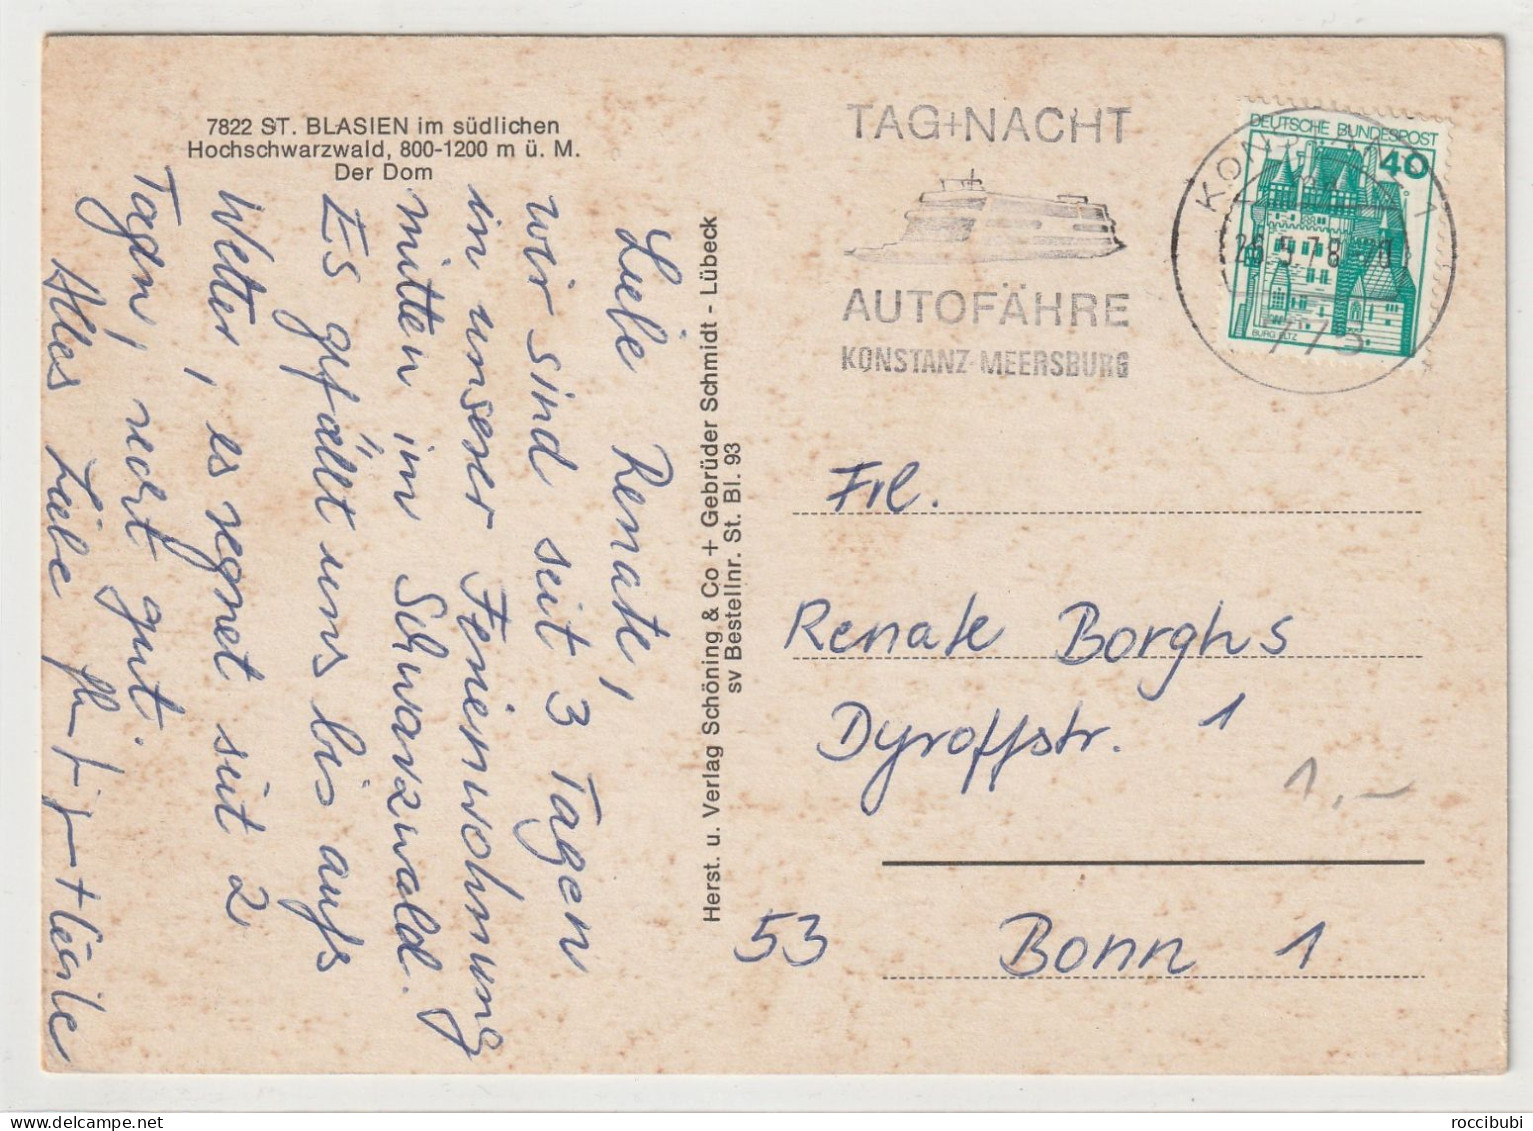 7822 ST. BLASIEN im südlichen
Hochschwarzwald, 800-1200 m ü. M.
Der Dom
Liebe Renate,
wir sind seit 3 Tagen
in unserer Ferienwohnung
mitten im Schwarzwald.
Es gefällt uns bis aufs
Wetter, es regnet seit 2
Tagen, recht gut.
Alles Liebe Ihr
Herst. u. Verlag Schöning & Co + Gebrüder Schmidt - Lübeck
sv Bestellnr. St. Bl. 93
TAG+NACHT
AUTOFÄHRE
KONSTANZ-MEERSBURG
DEUTSCHE BUNDESPOST
40
BURG ELTZ
KONSTANZ 1
26.5.78
775
Frl.
Renate Borghs
Dyroffstr. 1
1,-
53 Bonn 1
roccibubi